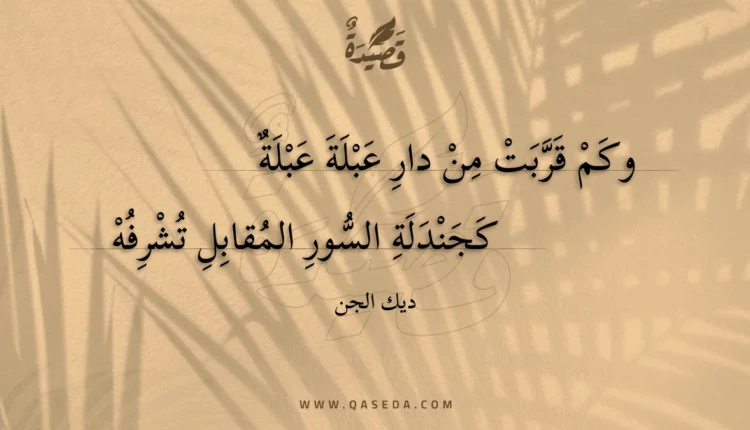 قَصِيْدَةٌ
وكَمْ قَرَّبَتْ مِنْ دارِ عَبْلَةَ عَبْلَةٌ
كَجَنْدَلَةِ السُّورِ المُقابِلِ تُشْرِفُهْ
ديك الجن
WWW.QASEDA.COM